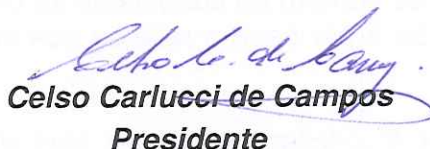 Celso Carlucci de Campos
Presidente